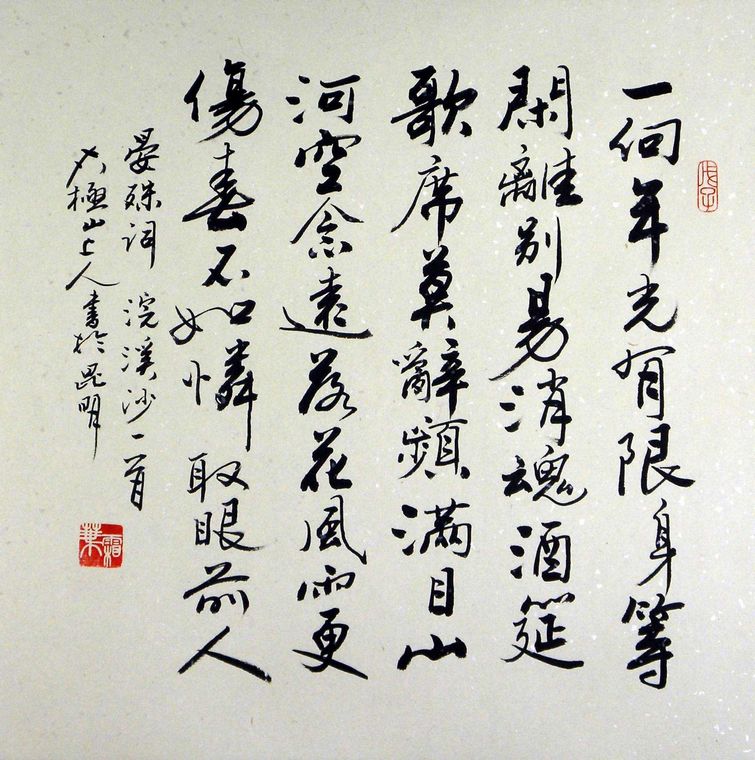 戊子
一向年光有限身等
閑離别易消魂酒筵
歌席莫辭頻滿目山
河空念遠落花風雨更
傷春不如憐取眼前人
晏殊詞 浣溪沙一首
太極山上人書於昆明
霜葉